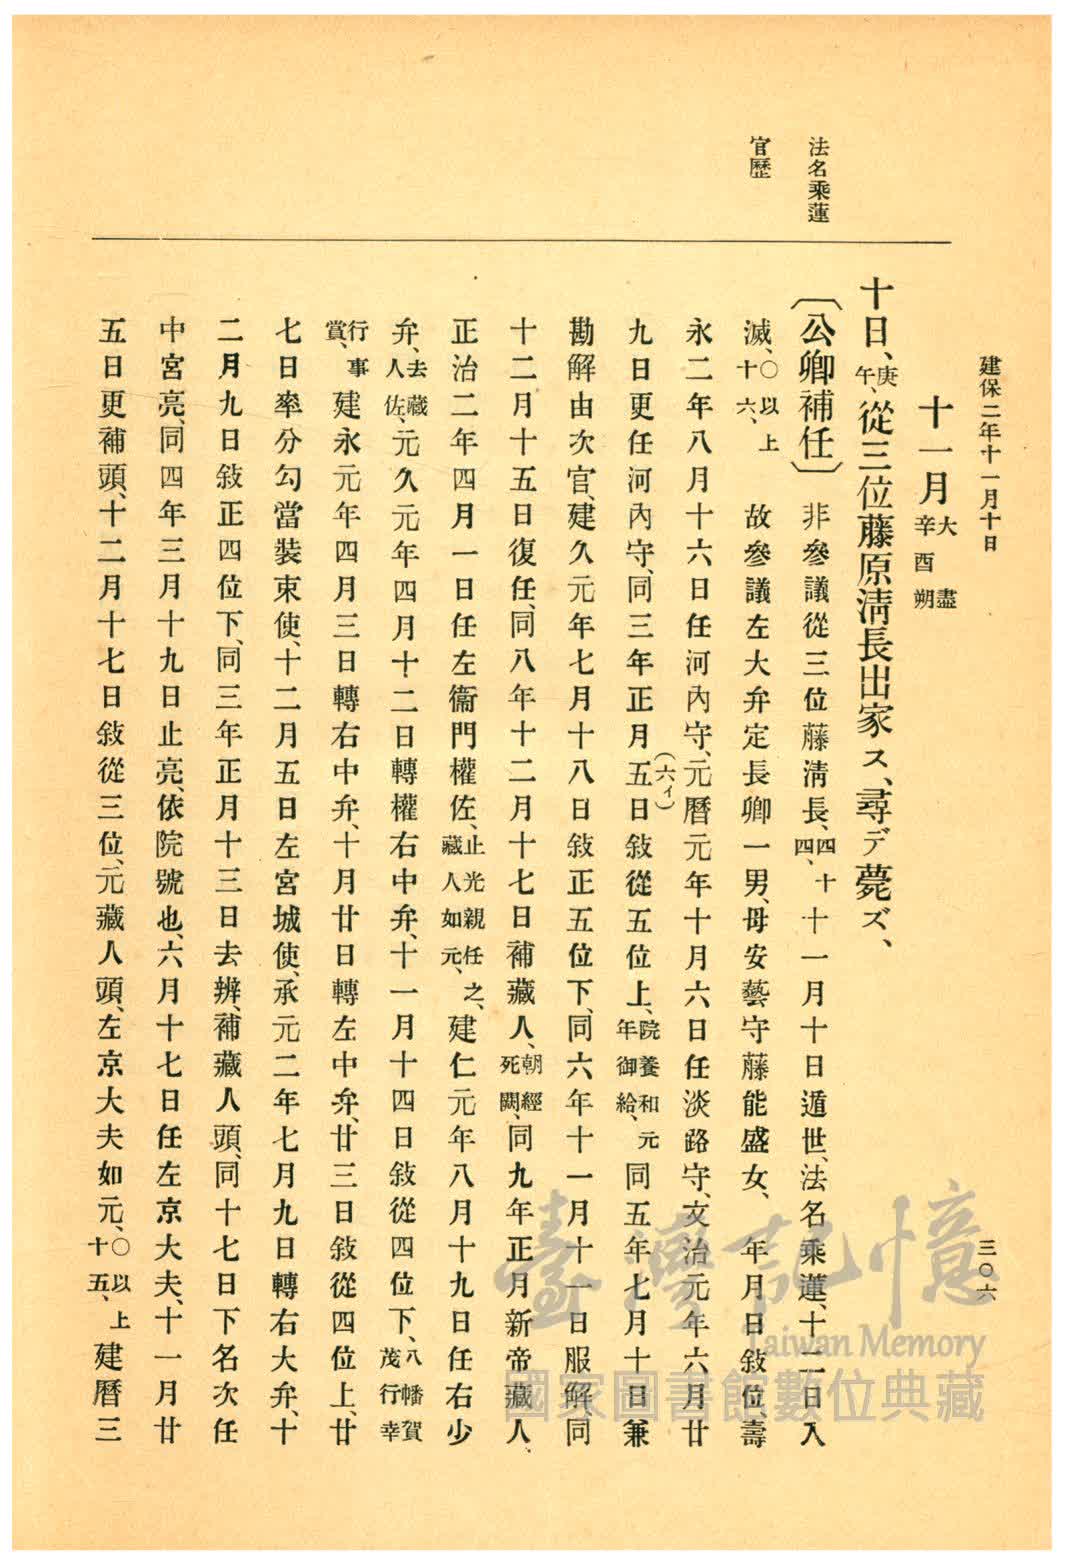 建保二年十一月十日
三〇六
法名乘蓮
官歷
十一月大盡辛酉朔
十日、庚午、從三位藤原淸長出家ス、尋デ薨ズ、
〔公卿補任〕非參議從三位藤淸長、四十四、十一月十日遁世、法名乘蓮、十二日入
滅、〇以上十六、故參議左大弁定長卿一男、母安藝守藤能盛女、年月日敍位、壽
永二年八月十六日任河內守、元曆元年十月六日任淡路守、文治元年六月廿
九日更任河內守、同三年正月五日(六イ)敍從五位上、院養和元年御給、同五年七月十日兼
勘解由次官、建久元年七月十八日敍正五位下、同六年十一月十一日服解、同
十二月十五日復任、同八年十二月十七日補藏人、朝經死闕、同九年正月新帝藏人、
正治二年四月一日任左衞門權佐、止光親任之、藏人如元、建仁元年八月十九日任右少
弁、去藏人佐、元久元年四月十二日轉權右中弁、十一月十四日敍從四位下、八幡賀茂行幸
行事賞、建永元年四月三日轉右中弁、十月廿日轉左中弁、廿三日敍從四位上、廿
七日率分勾當裝束使、十二月五日左宮城使、承元二年七月九日轉右大弁、十
二月九日敍正四位下、同三年正月十三日去辨、補藏人頭、同十七日下名次任
中宮亮、同四年三月十九日止亮、依院號也、六月十七日任左京大夫、十一月廿
五日更補頭、十二月十七日敍從三位、元藏人頭、左京大夫如元、〇以上十五、建曆三
臺灣記憶
Taiwan Memory
國家圖書館數位典藏